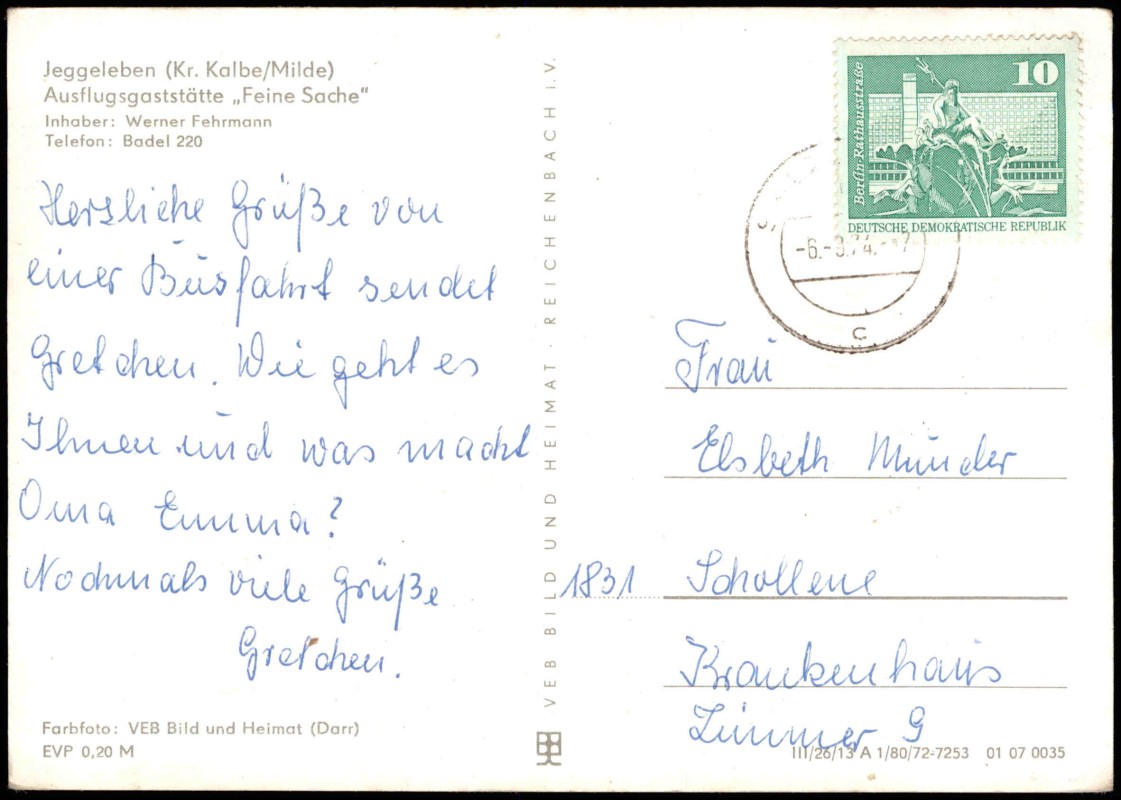 Jeggeleben (Kr. Kalbe/Milde)
Ausflugsgaststätte „Feine Sache“
Inhaber: Werner Fehrmann
Telefon: Badel 220
Herzliche Grüße von
einer Busfahrt sendet
Gretchen. Wie geht es
Ihnen und was macht
Oma Emma?
Nochmals viele Grüße
Gretchen.
Farbfoto: VEB Bild und Heimat (Darr)
EVP 0,20 M
VEB BILD UND HEIMAT · REICHENBACH I. V.
10
Berlin-Rathausstraße
DEUTSCHE DEMOKRATISCHE REPUBLIK
c
Frau
Elsbeth Münder
1831 Schollene
Krankenhaus
Zimmer 9
III/26/13 A 1/80/72-7253 01 07 0035